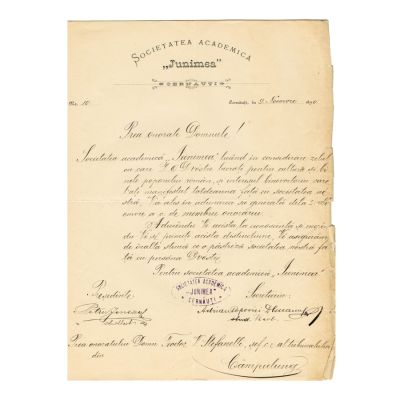 SOCIETATEA ACADEMICA
„Junimea"
CERNĂUȚI
No. 10
Cernăuți, în 9
Prea onorate Domnule!
Societatea academică „Junimea" luând în considerare zelul
cu care P. O. D vostră lucrați pentru cultura și bi-
nele poporului român, și interesul binevoitoriu care
l-ați manifestat totdeauna față cu societatea no-
stră, V'a ales în adunarea sa generală dela
a. c. de membru onorariu.
Aducându-Ve acesta la cunoscință și
Ve să primiți acésta distincțiune, Ve asigurăm
de înalta stimă ce o păstréză societatea nóstră fa-
ță cu persóna Dvostre.
Pentru societatea academică „Junimea"
Președinte
Secretariu:
SOCIETATEA ACADEMICA
"JUNIMEA"
CERNĂUȚI
Prea onoratului Domn T. V. Stefanelli,
din
Câmpulung